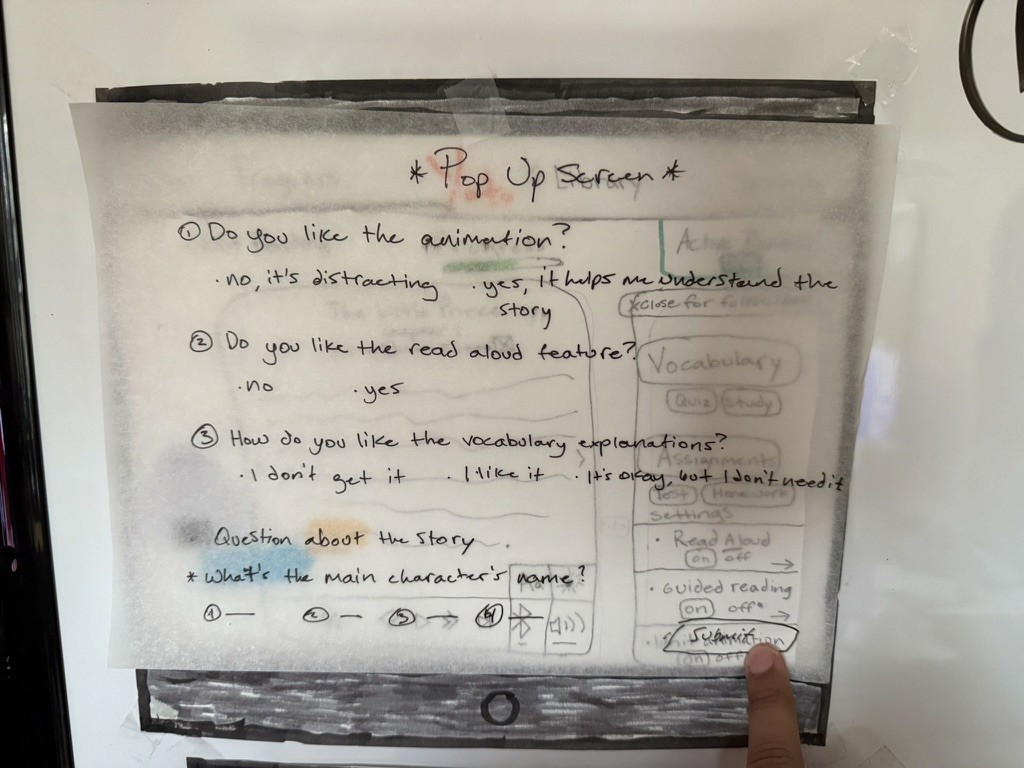 * Pop Up Screen *
Library
① Do you like the animation?
· no, it's distracting · yes, it helps me understand the
story
x close for
② Do you like the read aloud feature?
Vocabulary
· no · yes
Quiz Study
③ How do you like the vocabulary explanations?
Assignments
· I don't get it · I like it · It's okay, but I don't need it
Test Homework
settings
Question about the story.
· Read Aloud
on off →
* What's the main character's name?
· Guided reading
on off →
① — ② — ③ — ④ —
Submit
on off